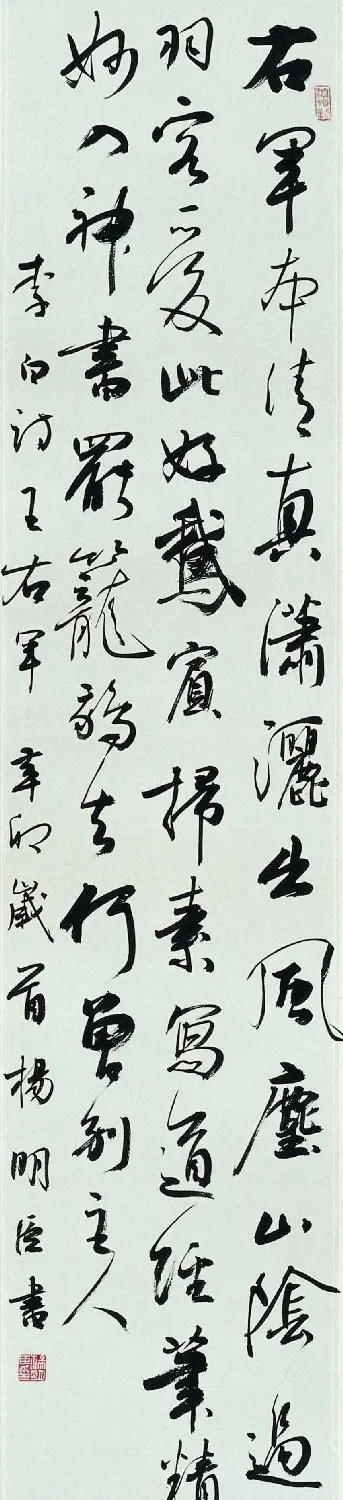 右軍本清真瀟灑出風塵山陰過
羽客愛此好鵝賓掃素寫道經筆精
妙入神書罷籠鵝去何曾別主人
李白詩王右軍 辛卯歲首楊明臣書